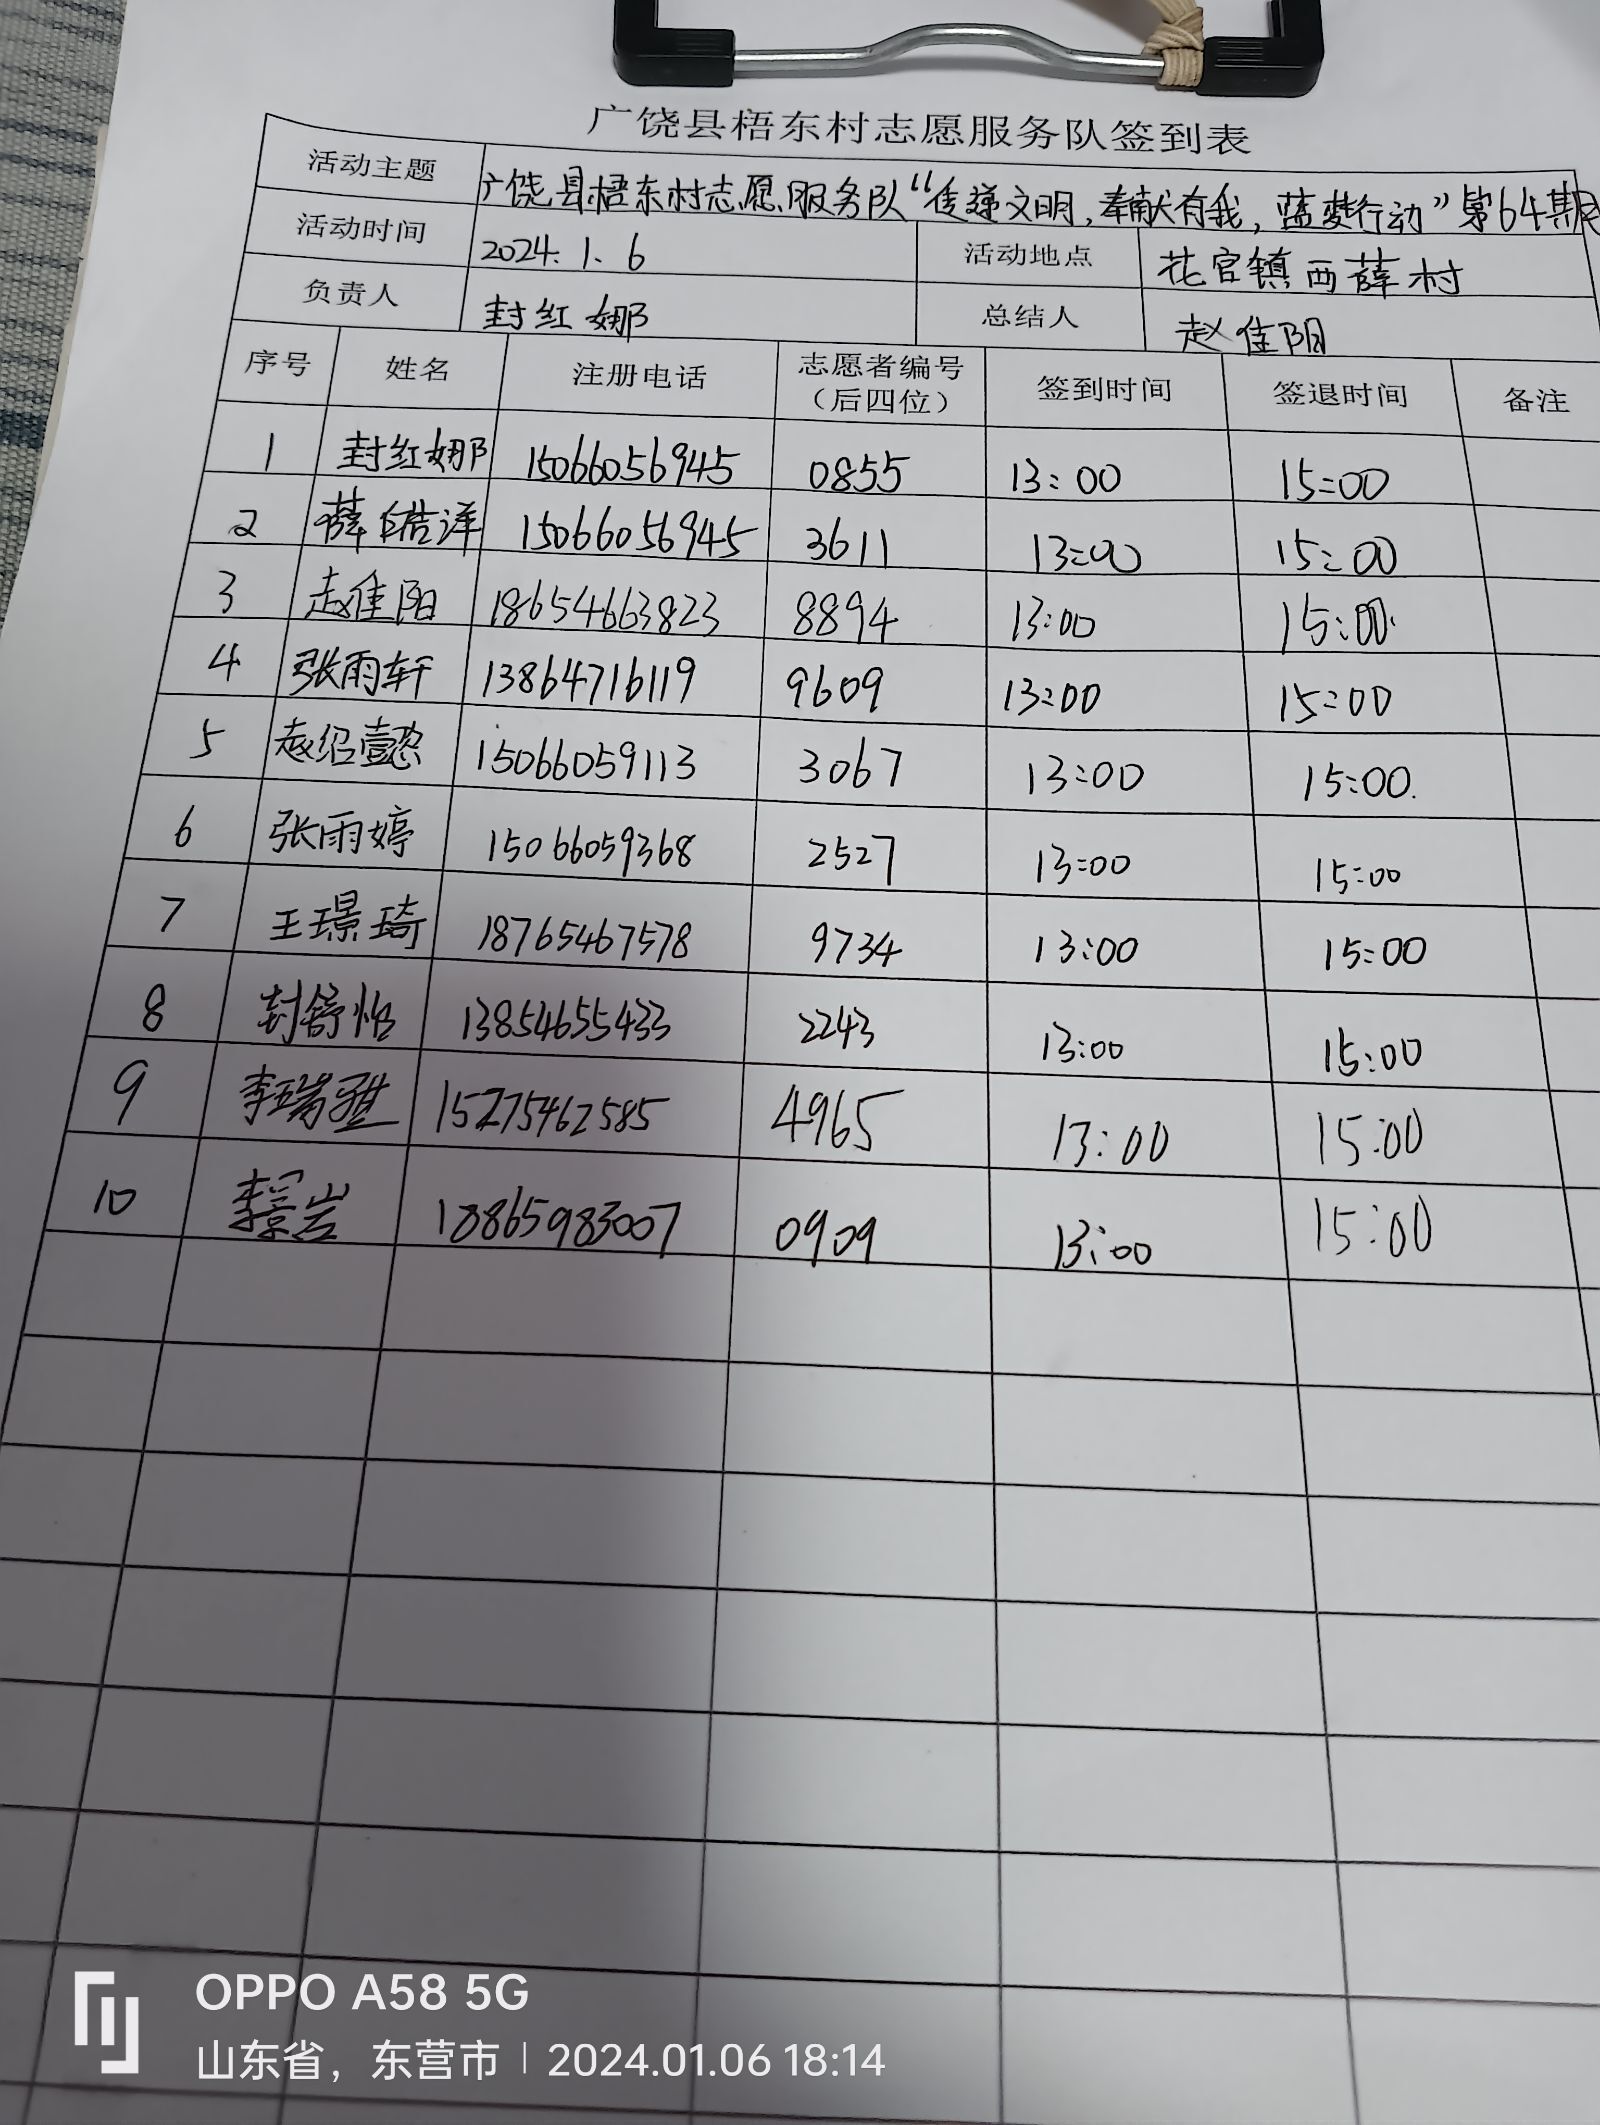 广饶县梧东村志愿服务队签到表
活动主题 广饶县梧东村志愿服务队“传递文明,奉献有我,蓝梦行动”第64期
活动时间 2024.1.6 活动地点 花官镇西薛村
负责人 封红娜 总结人 赵佳阳
序号 姓名 注册电话 志愿者编号（后四位） 签到时间 签退时间 备注
1 封红娜 15066056945 0855 13:00 15:00
2 薛皓洋 15066056945 3611 13:00 15:00
3 赵佳阳 18654663823 8894 13:00 15:00
4 张雨轩 13864716119 9609 13:00 15:00
5 赵绍懿 15066059113 3067 13:00 15:00
6 张雨婷 15066059368 2527 13:00 15:00
7 王璟琦 18765467578 9734 13:00 15:00
8 封舒怡 13854655433 2243 13:00 15:00
9 李瑞雅 15275462585 4965 13:00 15:00
10 李景岩 18865983007 0909 13:00 15:00
OPPO A58 5G
山东省，东营市 | 2024.01.06 18:14